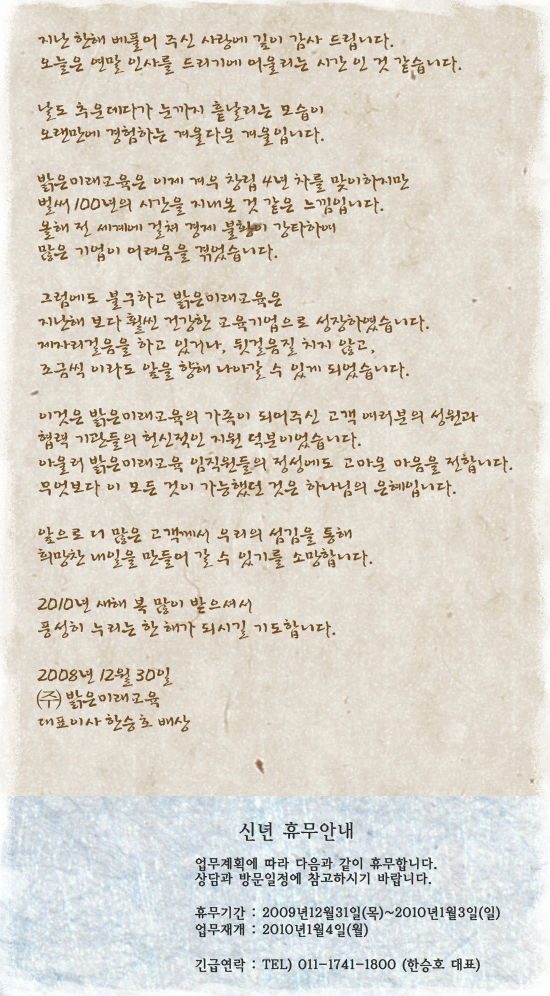 지난 한해 베풀어 주신 사랑에 깊이 감사 드립니다.
오늘은 연말 인사를 드리기에 어울리는 시간 인 것 같습니다.
날도 추운데다가 눈까지 흩날리는 모습이
오랜만에 경험하는 겨울다운 겨울입니다.
밝은미래교육은 이제 겨우 창립 4년 차를 맞이하지만
벌써 100년의 시간을 지내온 것 같은 느낌입니다.
올해 전 세계에 걸쳐 경제 불황이 강타하여
많은 기업이 어려움을 겪었습니다.
그럼에도 불구하고 밝은미래교육은
지난해 보다 훨씬 건강한 교육기업으로 성장하였습니다.
제자리걸음을 하고 있거나, 뒷걸음질 치지 않고,
조금씩 이라도 앞을 향해 나아갈 수 있게 되었습니다.
이것은 밝은미래교육의 가족이 되어주신 고객 여러분의 성원과
협력 기관들의 헌신적인 지원 덕분이었습니다.
아울러 밝은미래교육 임직원들의 정성에도 고마운 마음을 전합니다.
무엇보다 이 모든 것이 가능했던 것은 하나님의 은혜입니다.
앞으로 더 많은 고객께서 우리의 섬김을 통해
희망찬 내일을 만들어 갈 수 있기를 소망합니다.
2010년 새해 복 많이 받으셔서
풍성히 누리는 한 해가 되시길 기도합니다.
2008년 12월 30일
㈜ 밝은미래교육
대표이사 한승호 배상
신년 휴무안내
업무계획에 따라 다음과 같이 휴무합니다.
상담과 방문일정에 참고하시기 바랍니다.
휴무기간 : 2009년12월31일(목)~2010년1월3일(일)
업무재개 : 2010년1월4일(월)
긴급연락 : TEL) 011-1741-1800 (한승호 대표)